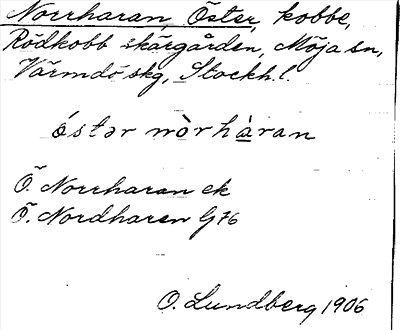 Norrharan, Öster, kobbe,
Rödkobb skärgården, Möja sn,
Värmdö skg, Stockh. l.
óstər nòrhàran
Ö. Norrharan ek
Ö. Nordharen G76
O. Lundberg 1906